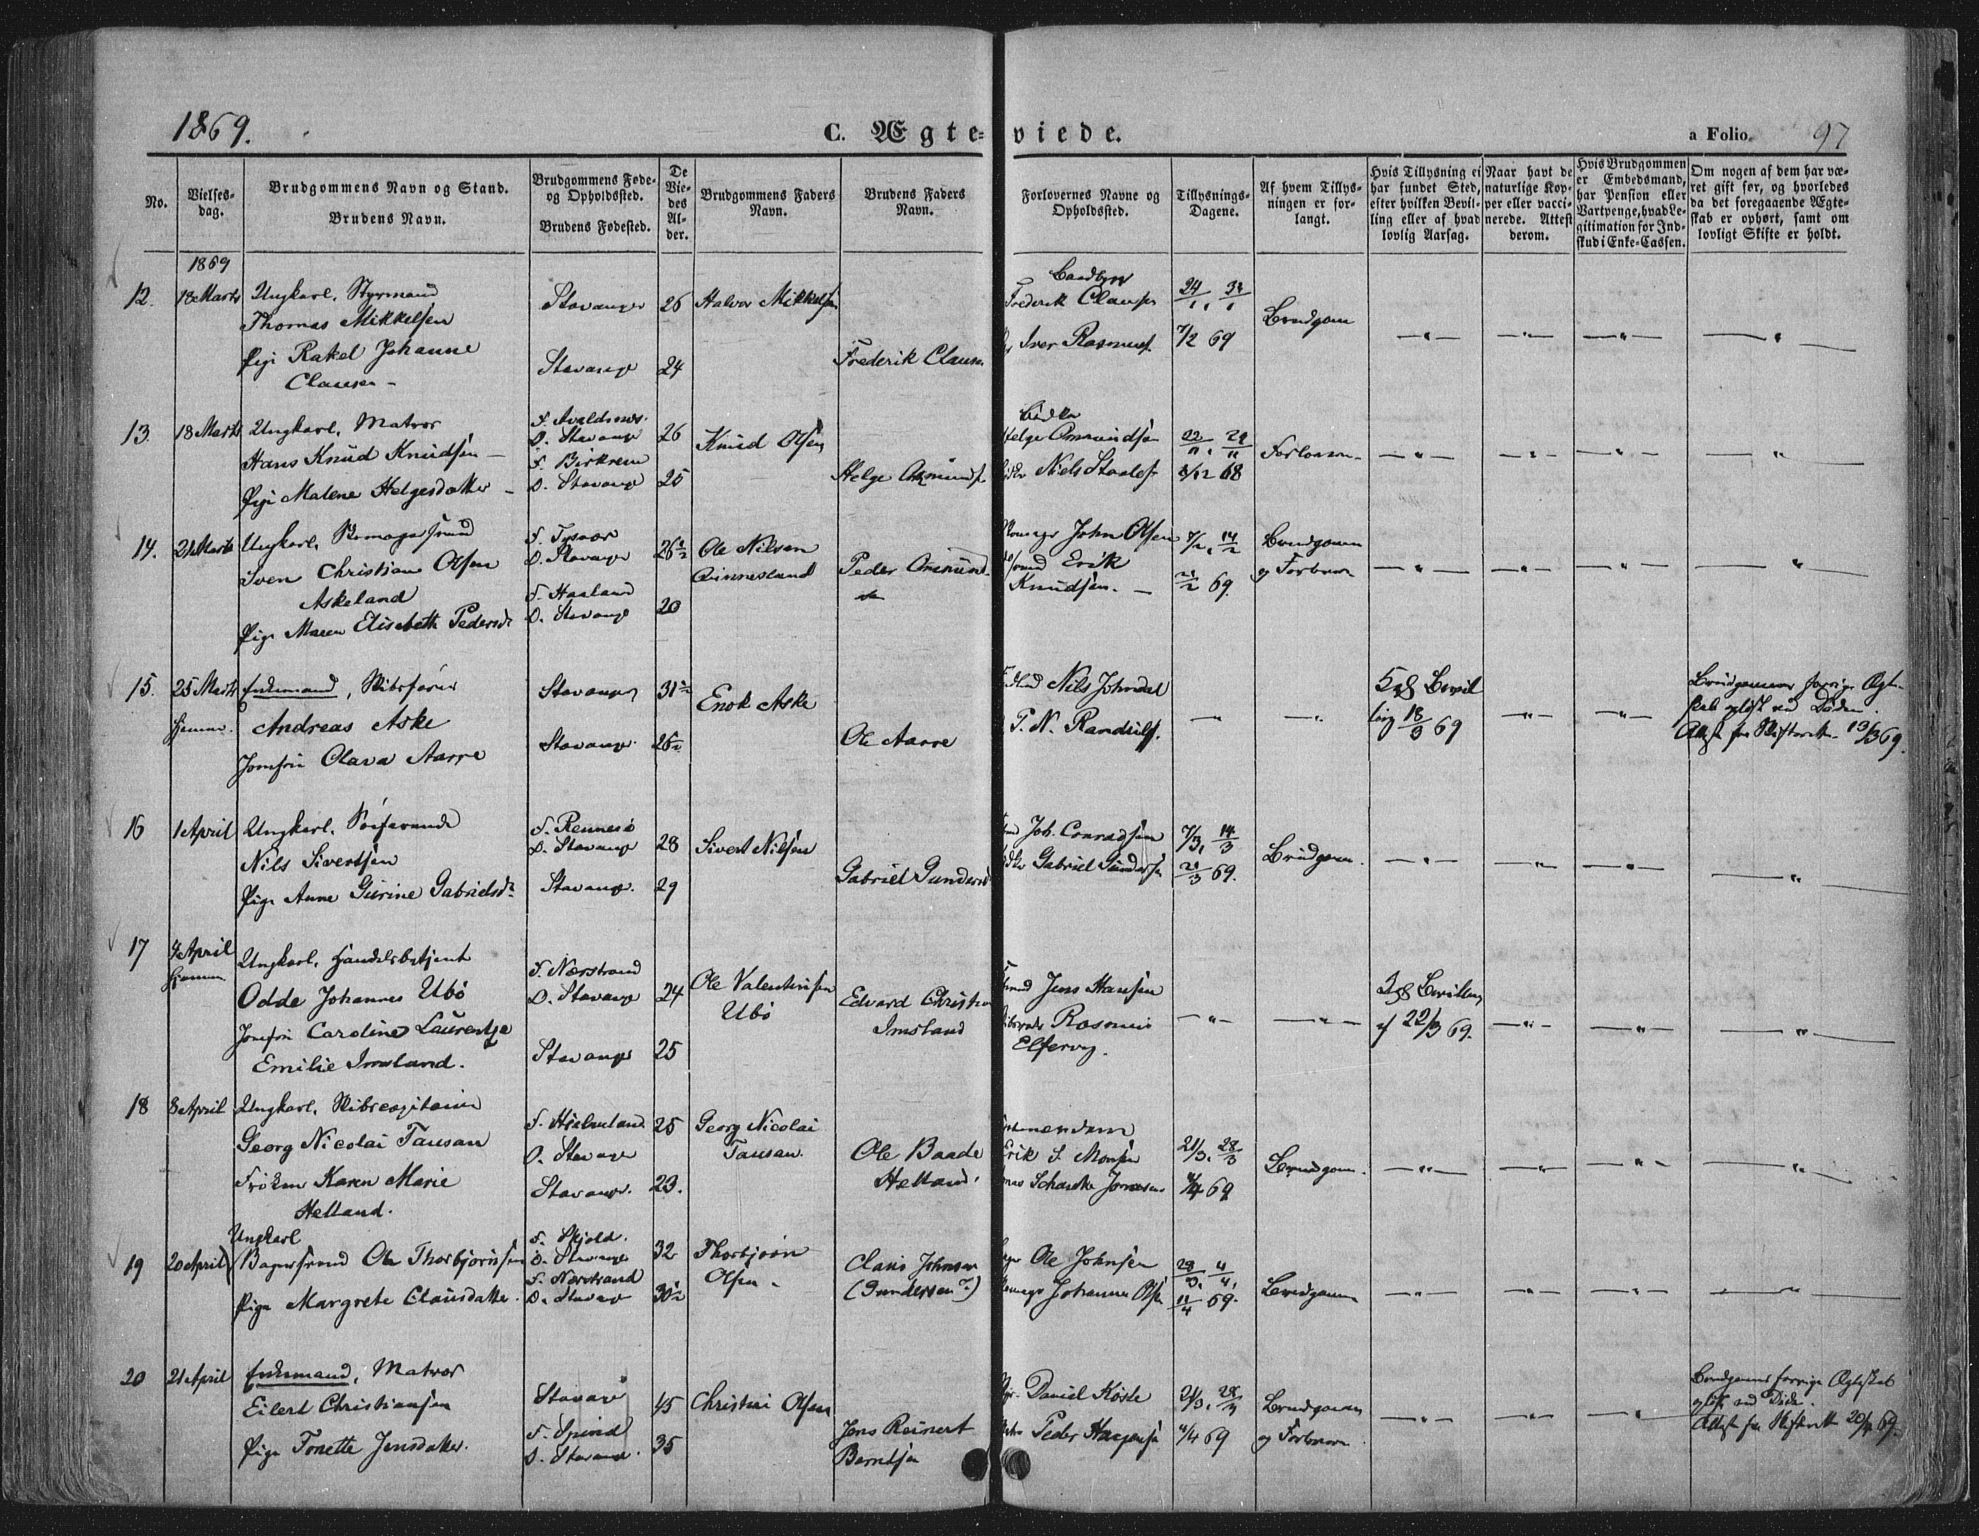 1869.
C. Ægteviede.
a Folio. 97
No.
Vielses-
dag.
Brudgommens Navn og Stand.
Brudens Navn.
Brudgommens Føde-
og Opholdssted.
Brudens Fødested.
De
Vie-
des
Al-
der.
Brudgommens Faders
Navn.
Brudens Faders
Navn.
Forlovernes Navne og
Opholdssted.
Tillysnings-
Dagene.
Af hvem Tillys-
ningen er for-
langt.
Hvis Tillysning ei
har fundet Sted,
efter hvilken Bevil-
ling eller af hvad
lovlig Aarsag.
Naar havt de
naturlige Kop-
per eller vacci-
nerede. Attest
derom.
Hvis Brudgommen
er Embedsmand,
har Pension eller
Vartpenge, hvad Le-
gitimation for Ind-
skud i Enke-Cassen.
Om nogen af dem har væ-
ret gift før, og hvorledes
da det foregaaende Ægte-
skab er ophørt, samt om
lovligt Skifte er holdt.
1869
12. 18 Marts Ungkarl, Styrmand
Thomas Mikkelsen
Pige Rakel Johanne
Clausen
Stavanger 26
Stavange 24
Halvor Mikkelsen
Frederik Claus
Frederik Clausen
Iver Rasmus
24/1, 31/1
7/2 69
Brudgom
13. 18 Marts Ungkarl, Matros
Hans Knud Knudsen
Pige Malene Helgesdatter
F. Avaldsnes.
O. Stavange 26
F. Birkrem
O. Stavange 25
Knud Olsen
Helge Omunds
Helge Omundsen
Niels Staales
22/11, 29/11
6/12 68
Forloveren
14. 21 Marts Ungkarl, Skomagersvend
Sven Christian Olsen
Askeland
Pige Maren Elisabeth Pedersd.
F. Tysvær
O. Stavange 26 1/2
F. Haaland
O. Stavange 20
Ole Nilsen
Qinnesland
Peder Omund-
sen
John Olsen
Erik
Knudsen.
7/2, 14/2
21/2 69.
Brudgommen
og Forlover
15. 25 Marts
hjemme.
Enkemand, Skibsfører
Andreas Aske
Jomfru Olava Aarre
Stavanger 31 1/2
Stavange 26 1/2
Enok Aske
Ole Aarre
Nils Johndal
P. N. Randulf.
5 Sp Bevil
ling 18/3 69
Brudgommens forrige Ægte-
skab opløst ved Døden.
Attest fra Skifteretten 13/3 69.
16 1 April Ungkarl, Søefarende
Nils Sivertsen
Pige Anne Gurine Gabrielsd.
F. Rennesø
O. Stavange 28
Stavange. 29
Sivert Nilsen
Gabriel Gunders
Joh. Conradsen
Gabriel Gundersen
7/3, 14/3
21/3 69.
Brudgom.
17 4 April
hjemme
Ungkarl, Handelsbetjent
Odde Johannes Ubø
Jomfru Caroline Laurentze
Emilie Imsland.
F. Nærstrand
O. Stavange 24
Stavange 25
Ole Valentinsen
Ubø
Edvard Christian
Imsland
Jens Hansen
Rasmus
Elfervig.
2 Sp Bevilling
af 22/3 69.
18 8 April Ungkarl, Skibscapitain
Georg Nicolai Tausan
Frøken Karen Marie
Helland.
F. Hjelmeland 25
O. Stavange
Stavange. 23.
Georg Nicolai
Tausan.
Ole Baade
Helland.
Erik S. Monsen
Schanke Jonasen
21/3, 28/3
4/4 69
Brudgom.
19 20 April Ungkarl
Bagersvend Ole Thorbjørnsen
Pige Margrete Clausdatter.
F. Skjold.
O. Stavange 32
F. Nærstrand
O. Stavange 30 1/2
Thorbjørn
Olsen
Claus Johnsen
(Gundersen?)
Ole Johnsen
Johannes Olsen
28/3, 4/4,
11/4 69.
Brudgommen
20 21 April Enkemand, Matros
Eilert Christiansen
Pige Tonette Jensdatter.
Stavange 45
F. Spind
O. Stavange. 35
Christian Olsen
Jens Reinert
Berntsen
Daniel Køste
Peder Haagensen
21/3, 28/3
4/4 69
Brudgommen
og Forlover.
Brudgommens forrige Ægteskab
opløst ved Døde.
Attest fra Skifterett 20/4 69.